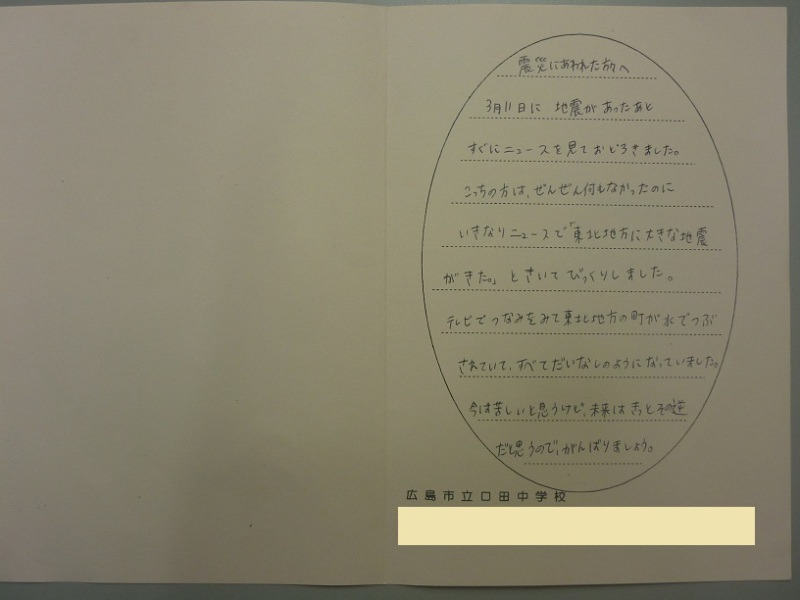 震災にあわれた方々へ
3月11日に 地震があったあと
すぐにニュースを見ておどろきました。
こっちの方は、ぜんぜん何もなかったのに
いきなりニュースで「東北地方に大きな地震
がきた。」ときいてびっくりしました。
テレビでつなみをみて東北地方の町が水でつぶ
されていて、すべてだいなしのようになっていました。
今は苦しいと思うけど、未来はきっとその逆
だと思うので、がんばりましょう。
広島市立口田中学校